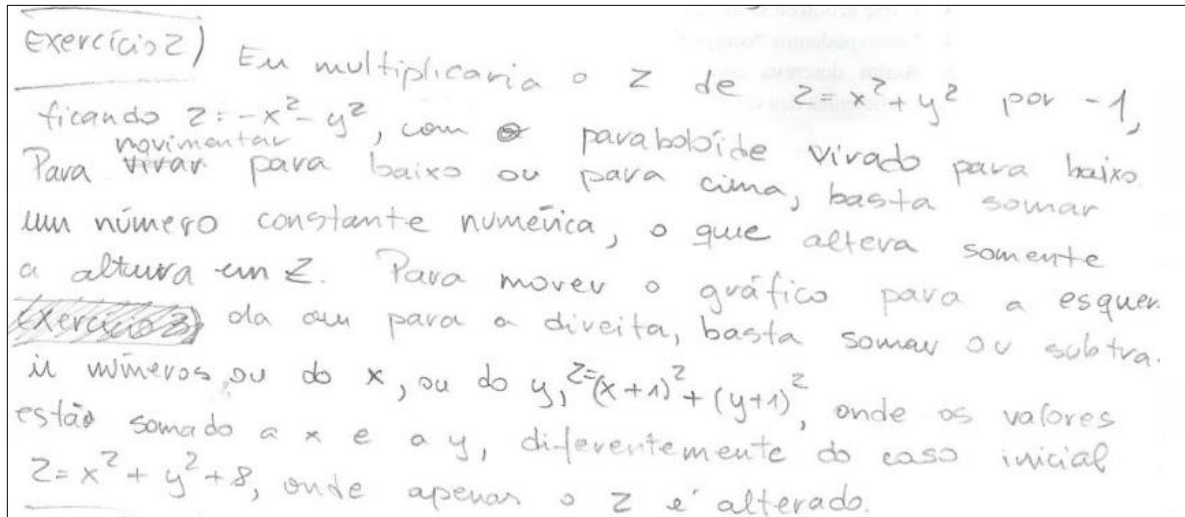 Exercício 2) Eu multiplicaria o z de z = x² + y² por -1,
ficando z = -x² - y², com parabolóide virado para baixo.
Para movimentar para baixo ou para cima, basta somar
um número constante numérica, o que altera somente
a altura em z. Para mover o gráfico para a esquer.
da ou para a direita, basta somar ou subtra.
ir números, ou do x, ou do y, z=(x+1)² + (y+1)², onde os valores
estão somado a x e a y, diferentemente do caso inicial
z = x² + y² + 8, onde apenas o z é alterado.